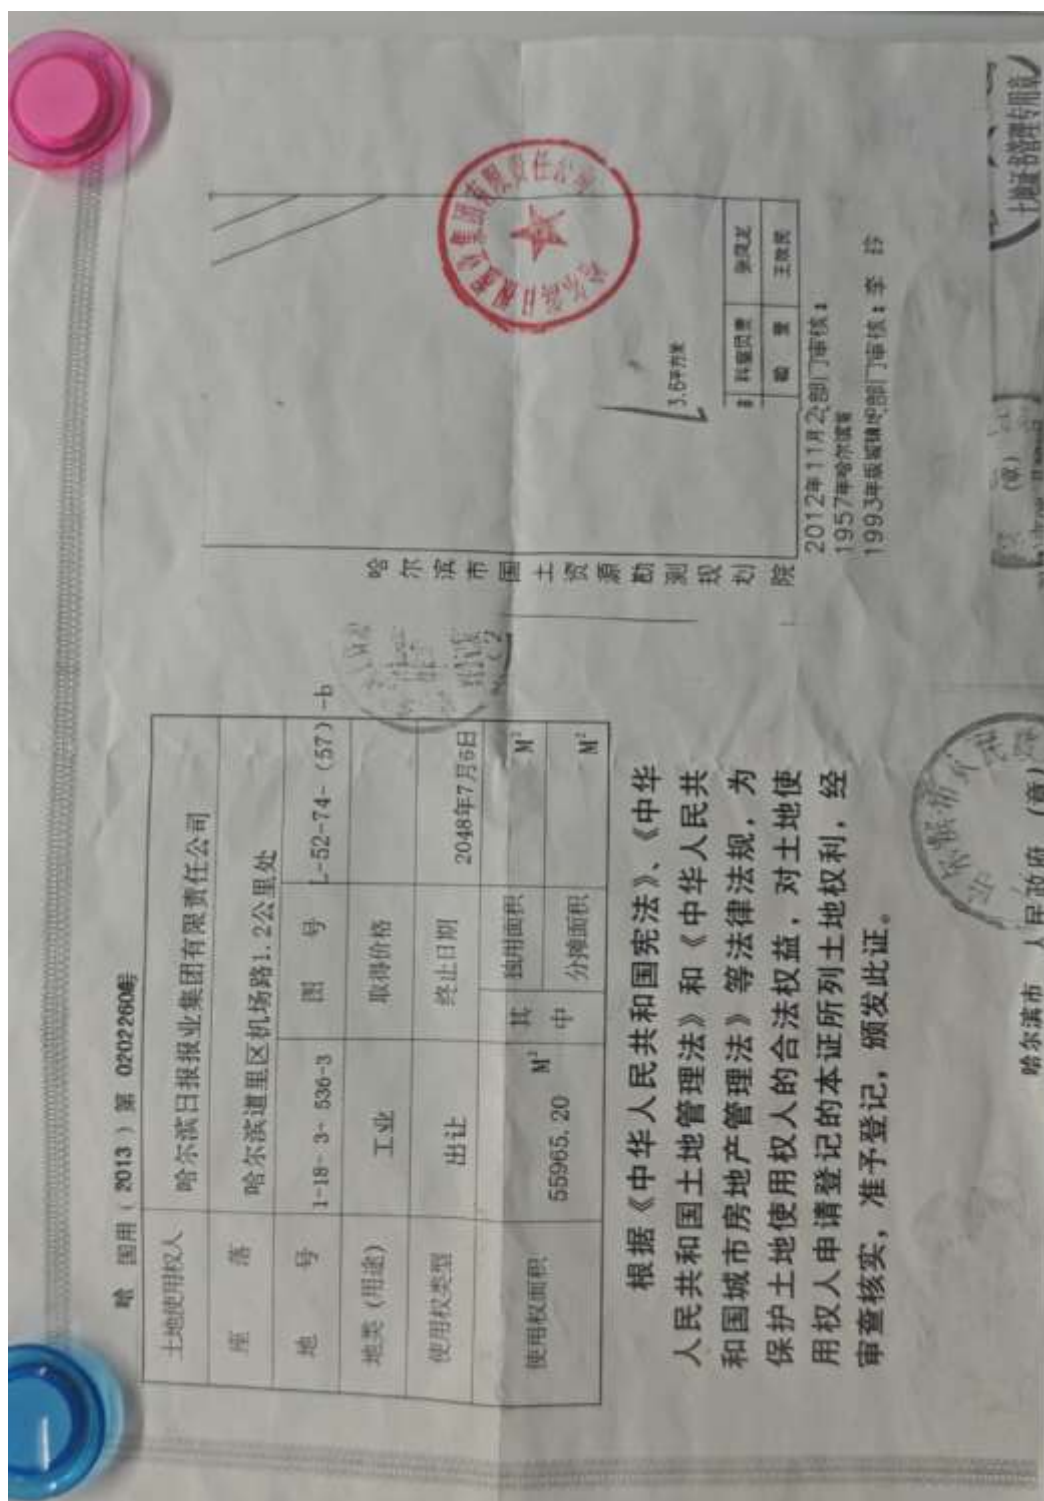 哈 国用（2013）第 0202260号
土地使用权人 哈尔滨日报报业集团有限责任公司
座 落 哈尔滨道里区机场路1.2公里处
地 号 1-18-3-536-3 图 号 L-52-74-(57)-b
地类（用途） 工业 取得价格
使用权类型 出让 终止日期 2048年7月6日
使用权面积 55965.20 M² 其中 独用面积 M²
分摊面积 M²
根据《中华人民共和国宪法》、《中华
人民共和国土地管理法》和《中华人民共
和国城市房地产管理法》等法律法规，为
保护土地使用权人的合法权益，对土地使
用权人申请登记的本证所列土地权利，经
审查核实，准予登记，颁发此证。
哈尔滨市 人民政府（章）
哈尔滨市国土资源勘测规划院
哈尔滨日报报业集团有限责任公司
3.6平方米
2012年11月2
部门审核：
1957年哈尔滨
1993年版
部门审核：李
（章）
土地证书管理专用章